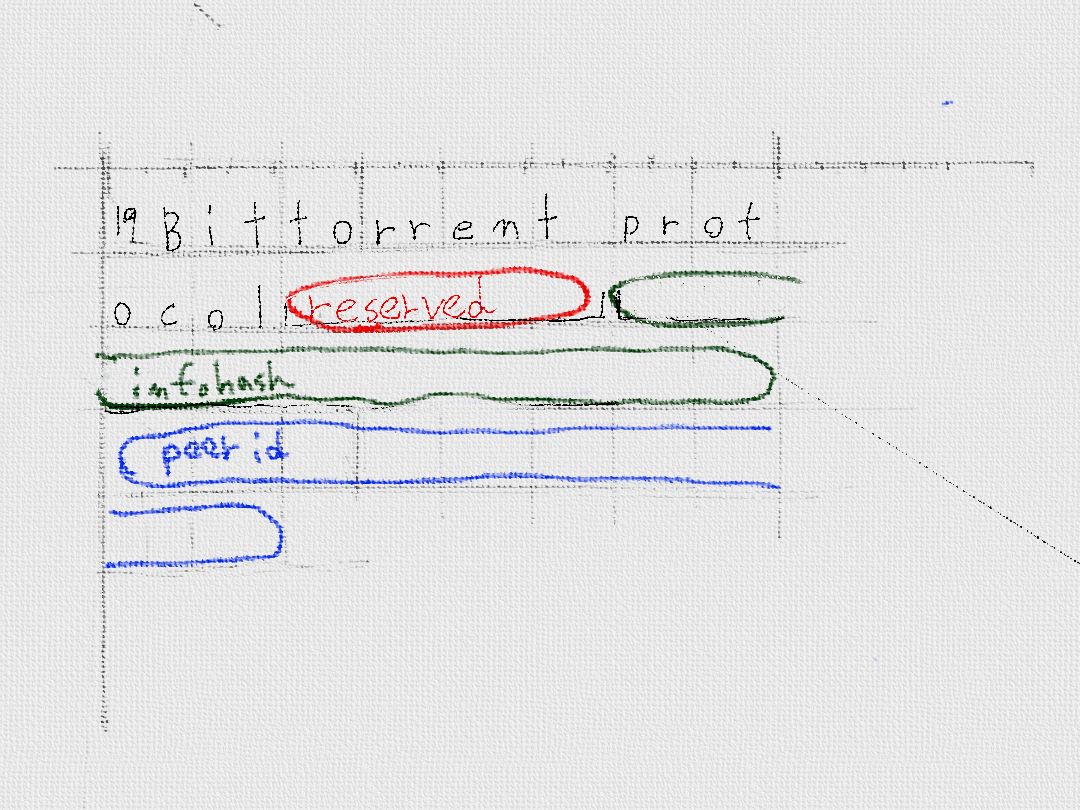 19 B i t t o r r e n t   p r o t
o c o l reserved
infohash
peer id